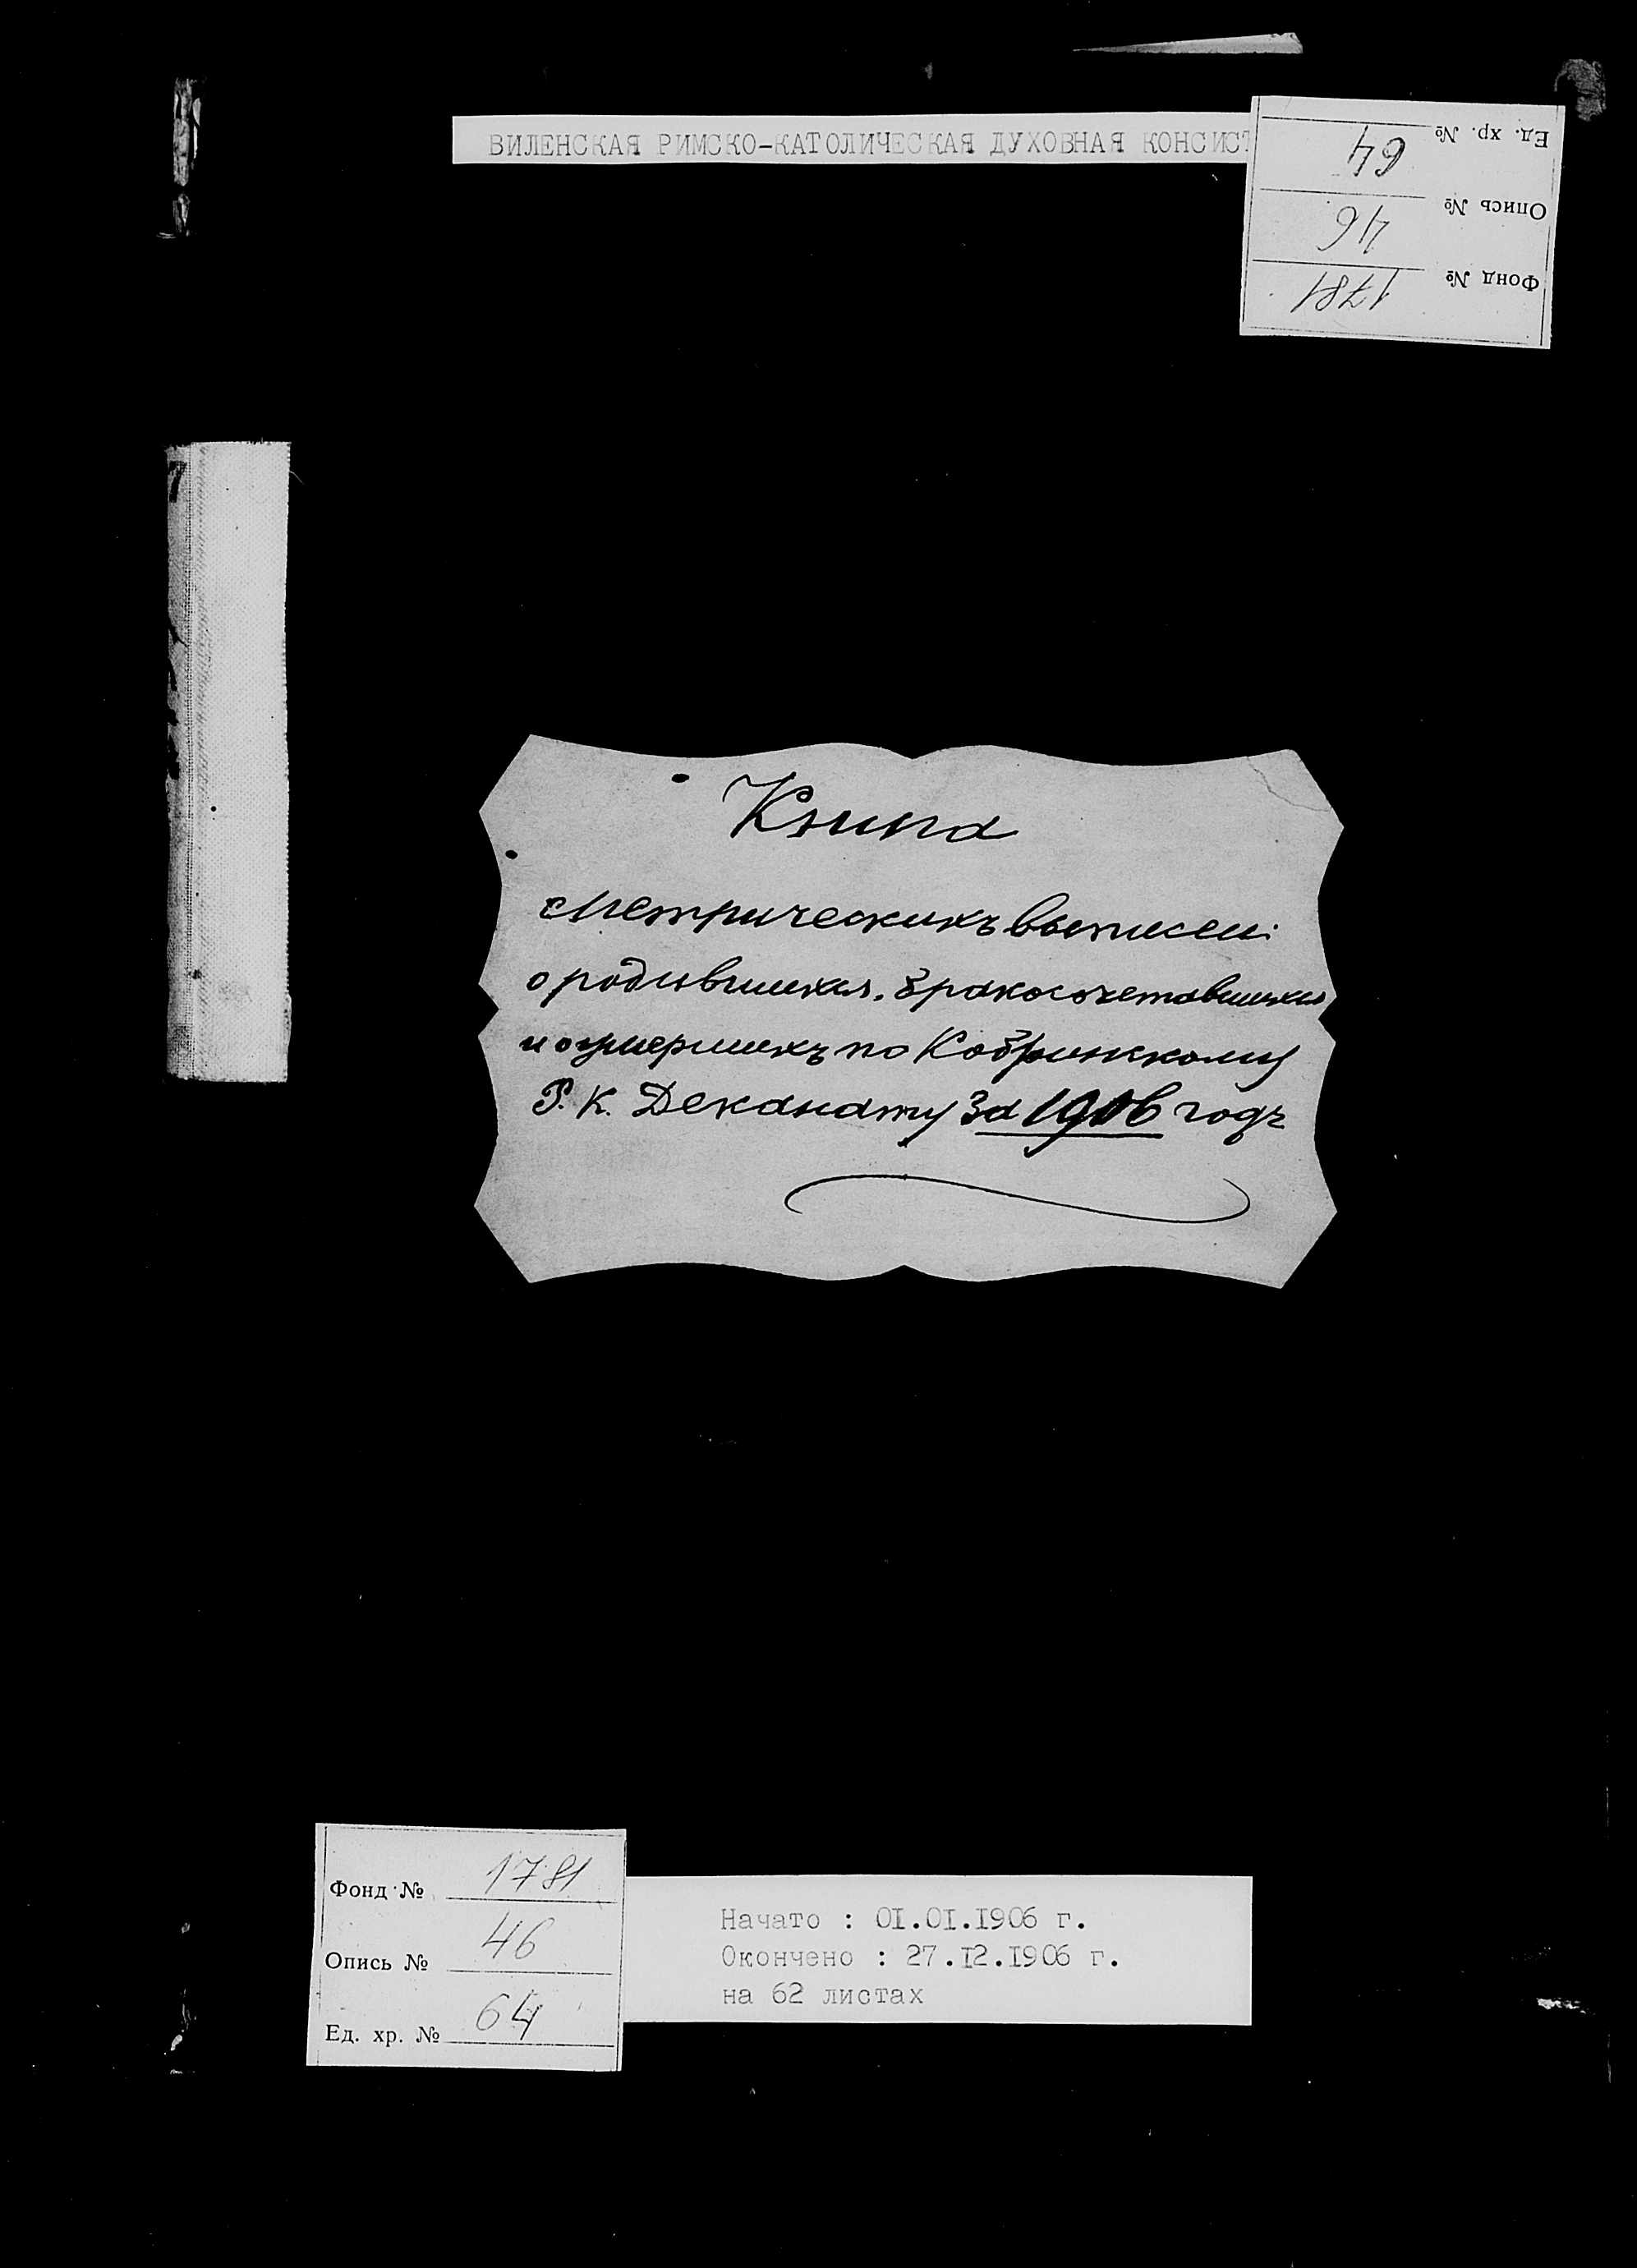 ВИЛЕНСКАЯ РИМСКО-КАТОЛИЧЕСКАЯ ДУХОВНАЯ КОНСИСТ
Фонд № 1781
Опись № 46
Ед. хр. № 64
Книга
Метрическихъ выписей:
о родившихся, бракосочетавшихся
и о умершихъ по Кобринскому
Р. К. Деканату за 1906 годъ
Фонд № 1781
Опись № 46
Ед. хр. № 64
Начато : 01.01.1906 г.
Окончено : 27.12.1906 г.
на 62 листах